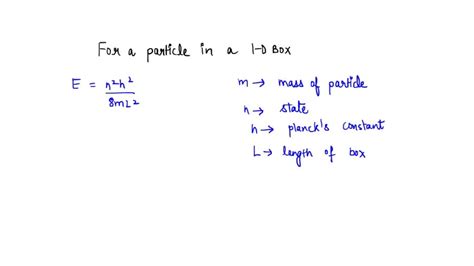 For a particle in a 1-D Box
E = n²h² / 8mL²
m → mass of particle
n → state
h → planck's constant
L → length of box